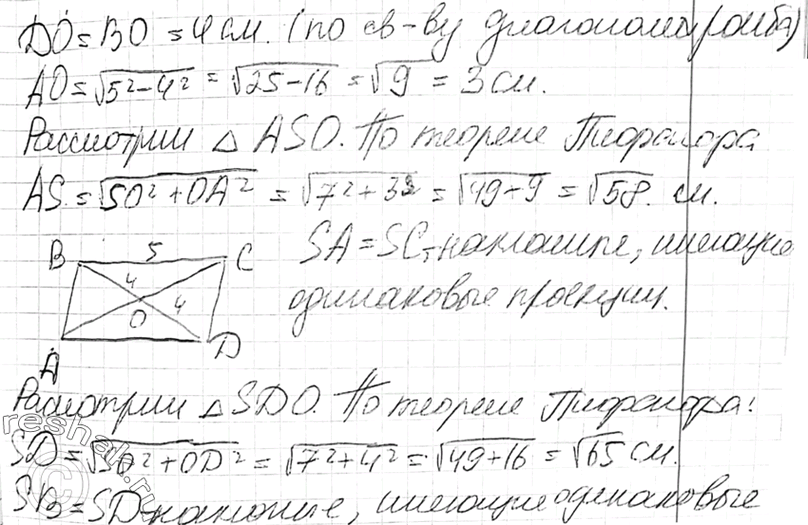 DO = BO = 4 см. (по св-ву диагоналей ромба)
AO = √5² - 4² = √25 - 16 = √9 = 3 см.
Рассмотрим △ ASO. По теореме Пифагора
AS = √SO² + OA² = √7² + 3² = √49 + 9 = √58. см.
B 5 C
SA = SC, наклонные, имеющие
4
4
O
одинаковые проекции.
A D
Расмотрим △ SDO. По теореме Пифагора:
SD = √SO² + OD² = √7² + 4² = √49 + 16 = √65 см.
SB = SD наклонные, имеющие одинаковые
reshak.ru